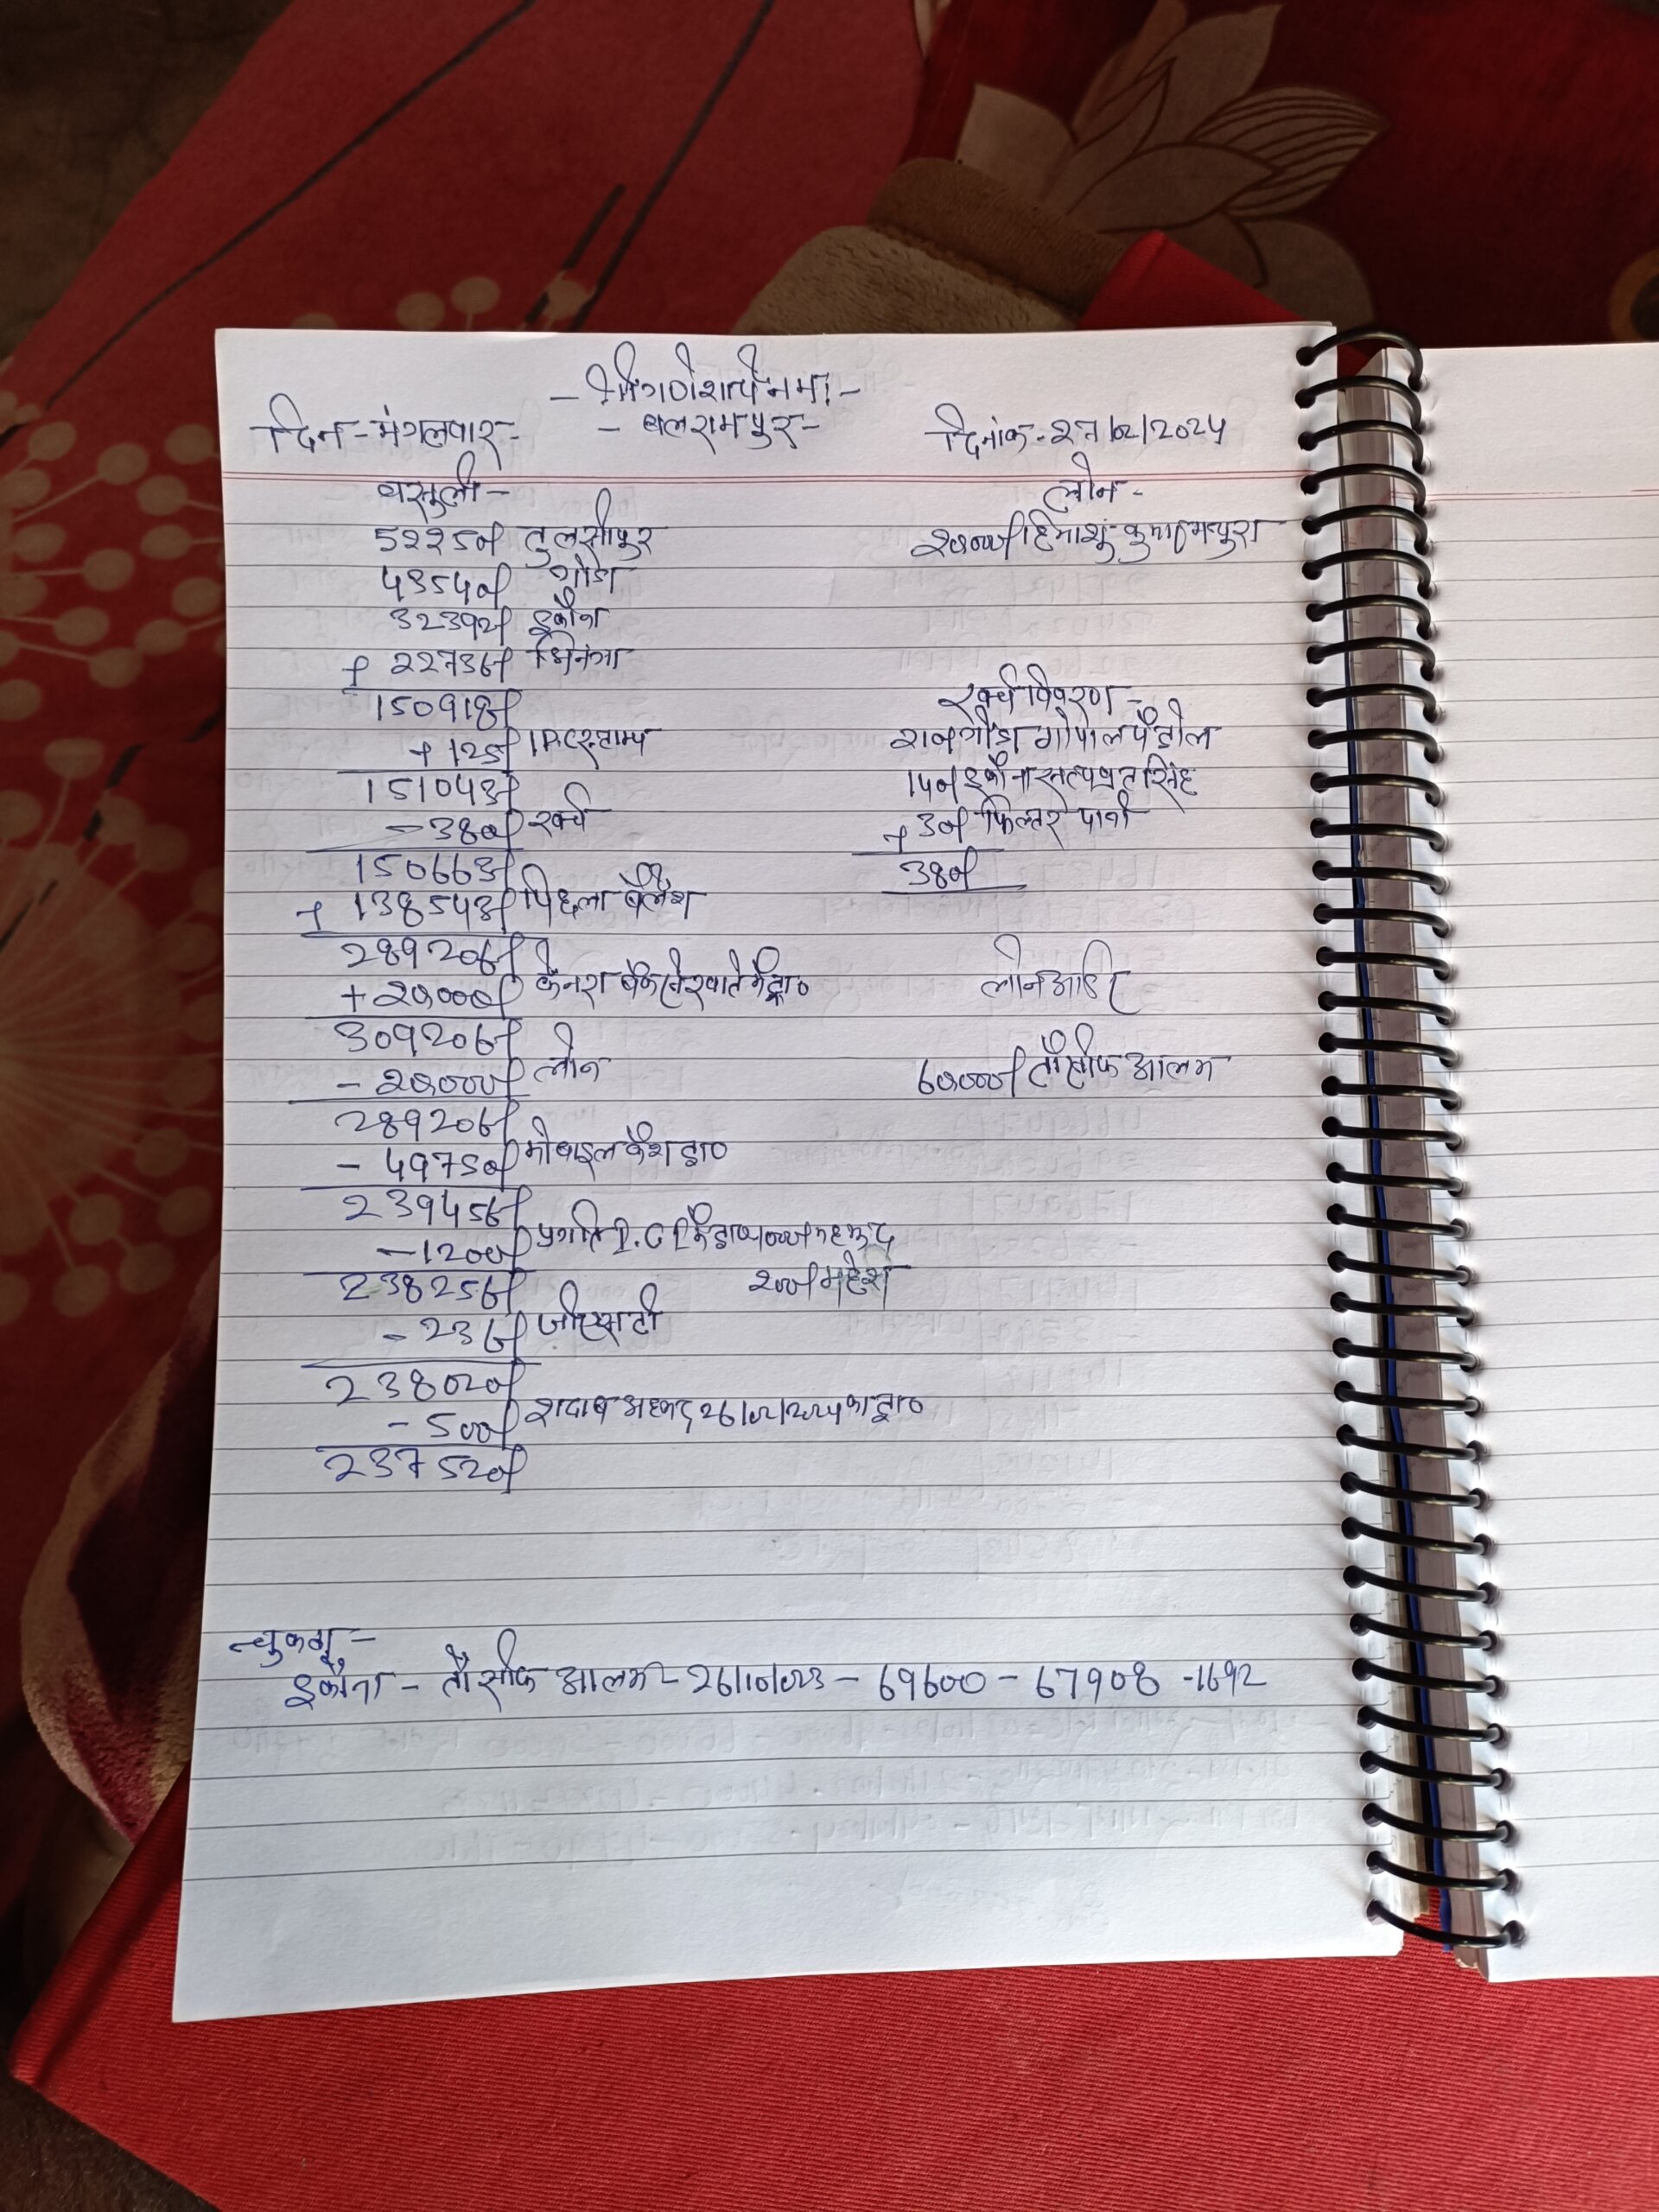 - श्री गणेशाय नमः -
दिन - मंगलवार - - बलरामपुर - दिनांक - 27/02/2024
वसुली -
52250/- तुलसीपुर
43540/- गोंडा
32392/- इकौना
+ 22736/- भिनगा
150918/-
+ 125/- I.P.C स्टाम्प
151043/-
- 380/- खर्च
150663/-
+ 138543/- पिछला बैलेंश
289206/-
+ 20,000/- केनरा बैंक खाते
309206/-
- 20,000/- लोन
289206/-
- 49750/- मोबाइल कैश द्वा०
239456/-
- 1200/- प्रगति
200/- महेश
238256/-
- 236/- जीएसटी
238020/-
- 500/- शदाब अहमद 26/02/2024 का द्वा०
237520/-
लोन -
20,000/- हिमाशुं कुमार
खर्च विवरण -
200/- गोंडा गोपाल पैट्रोल
150/- इकौना सत्यव्रत सिंह
+ 30/- फिल्टर पानी
380/-
लोन आर्डर
60,000/- तौसीफ आलम
चुकता -
इकौना - तौसीफ आलम - 26/10/023 - 69600 - 67908 - 1692